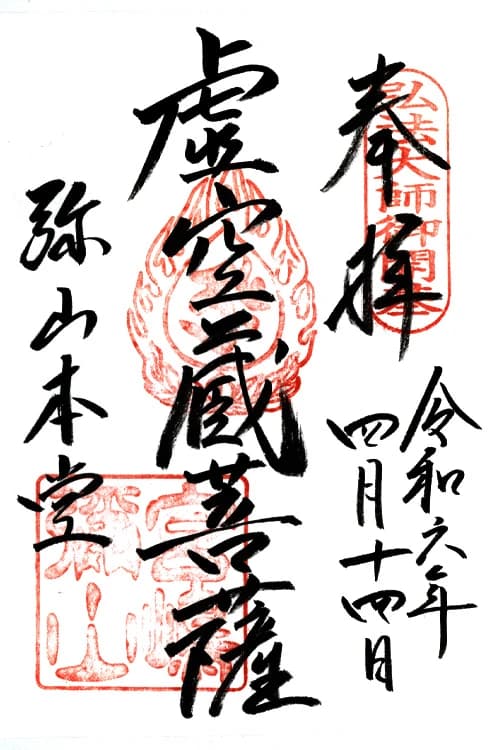 奉拝
弘法大師御開基
令和六年
四月十四日
虚空蔵菩薩
弥山本堂